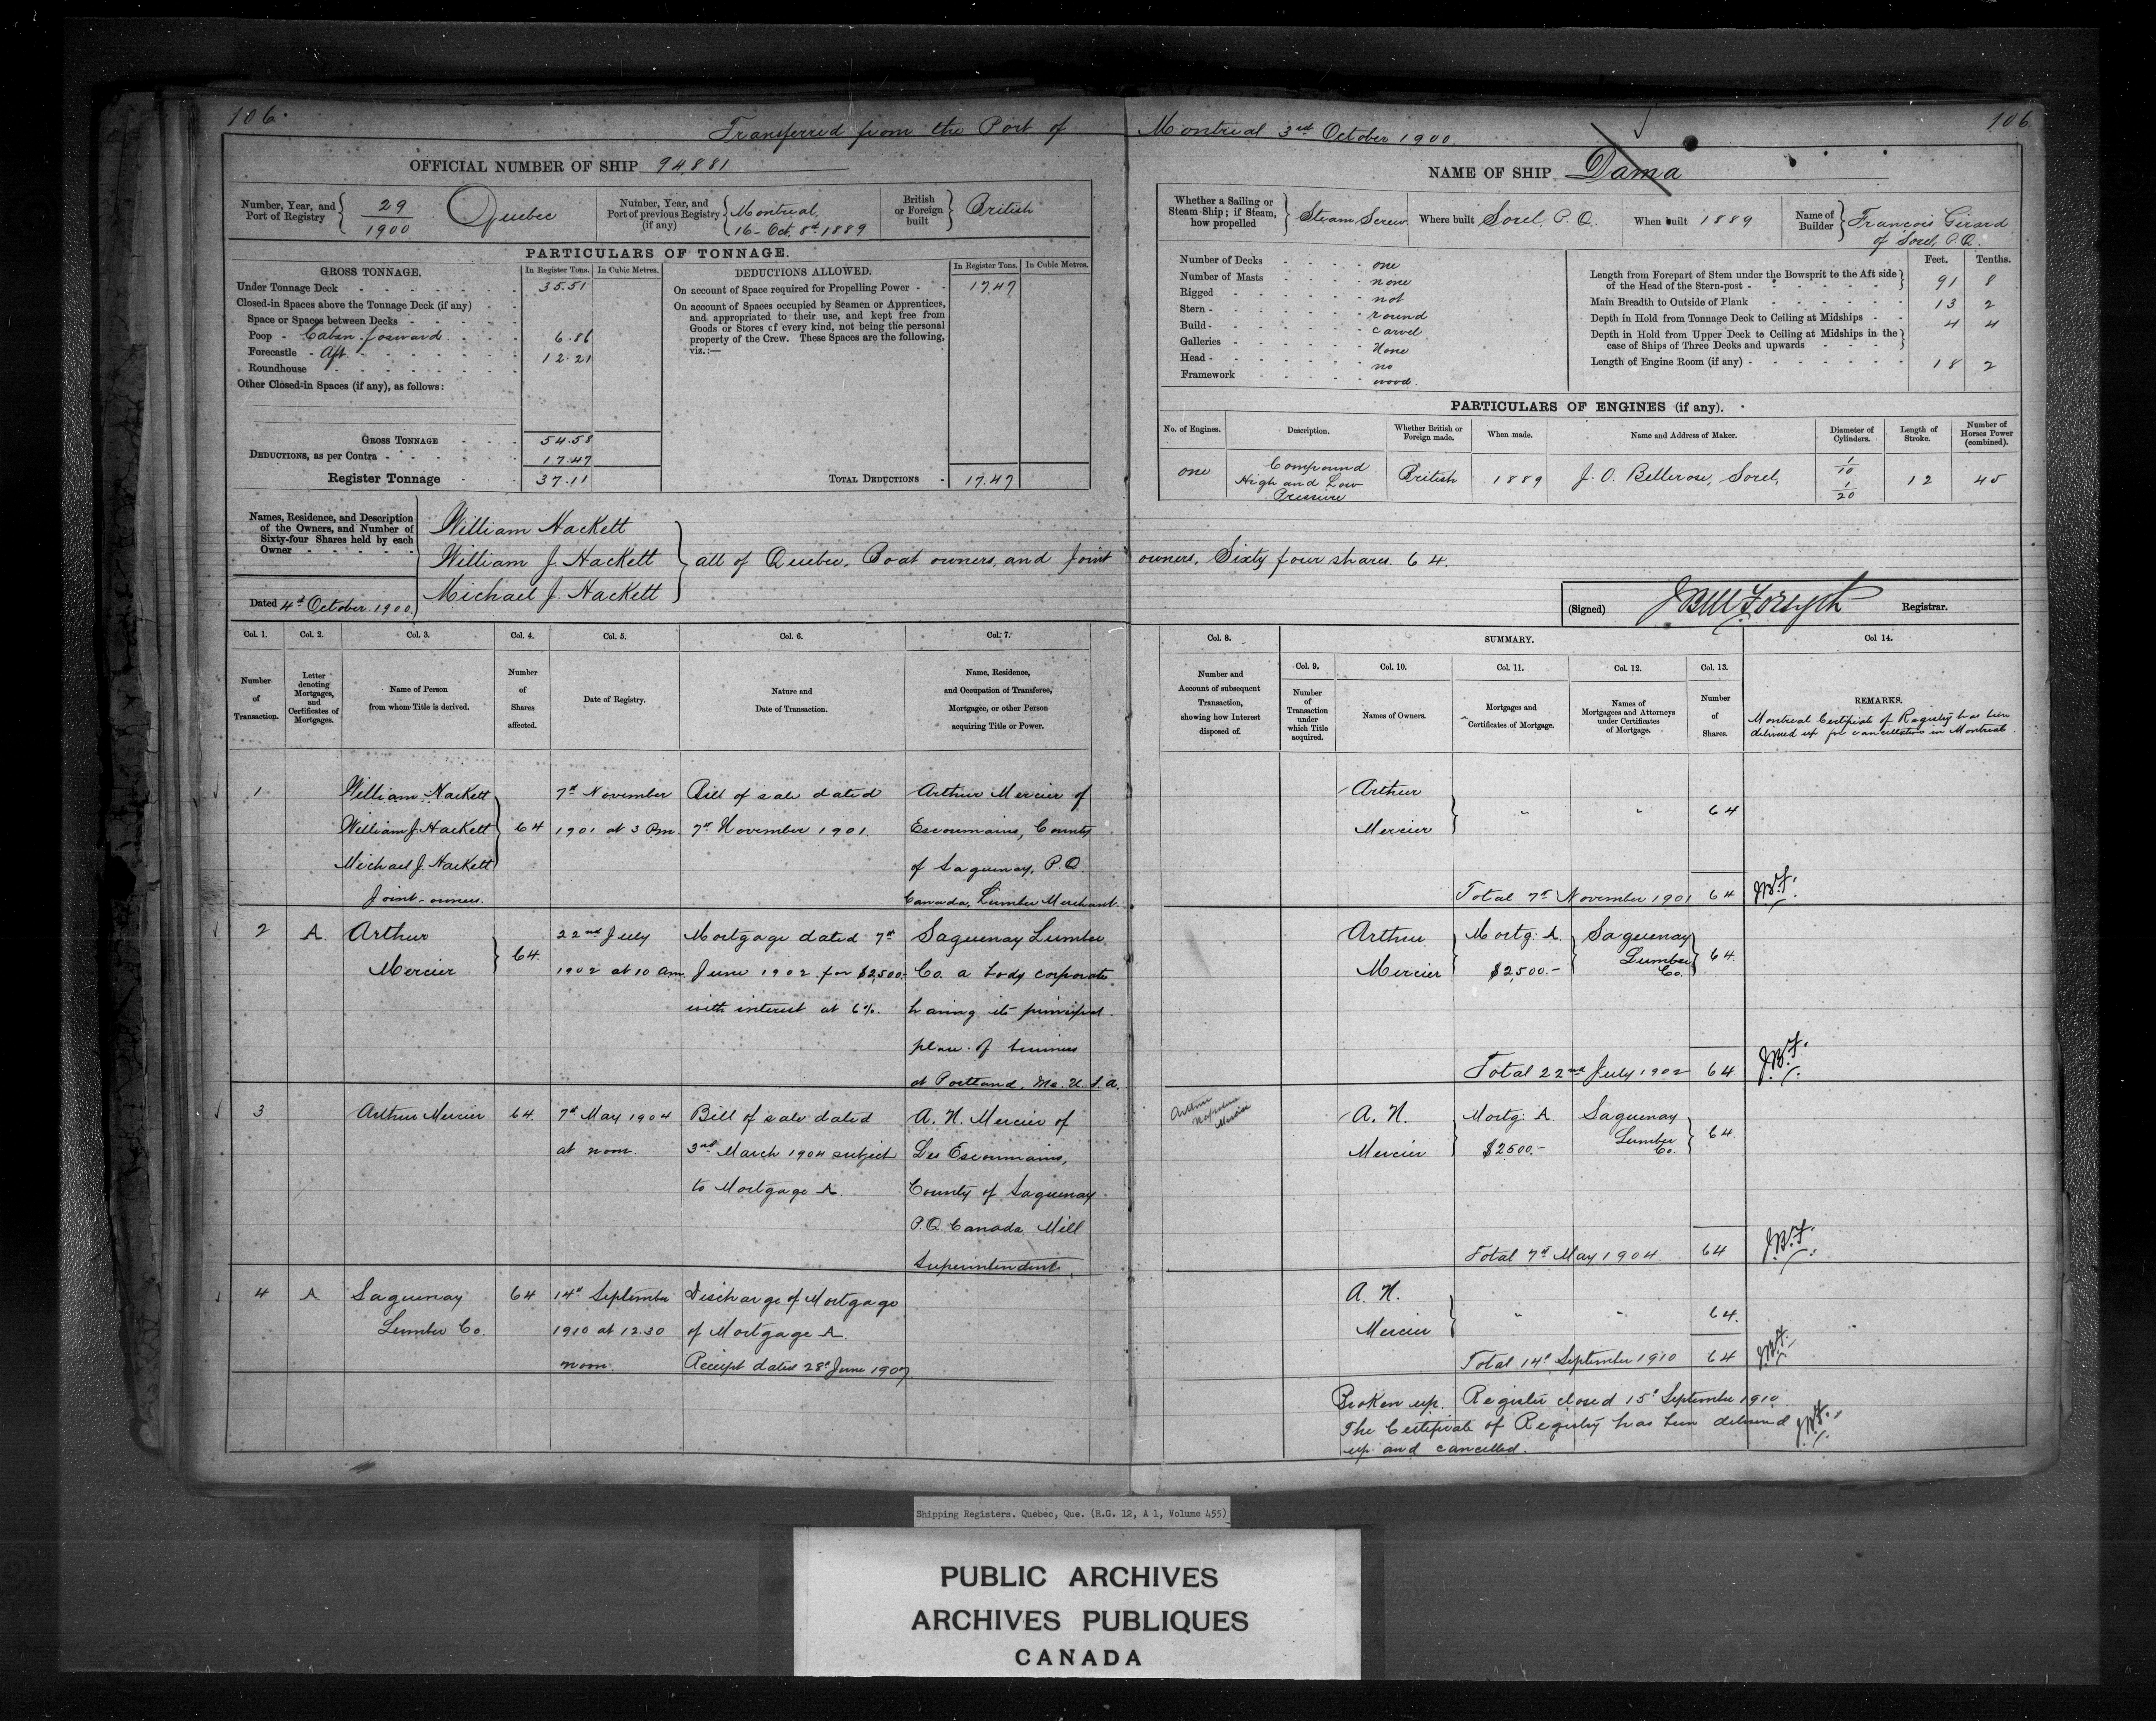 106.
Transferred from the Port of Montreal 3rd October 1900.
106
OFFICIAL NUMBER OF SHIP 94881
Number, Year, and Port of Registry { 29/1900 Quebec
Number, Year, and Port of previous Registry (if any) { Montreal, 16 - Oct. 8th 1889
British or Foreign built } British
PARTICULARS OF TONNAGE.
GROSS TONNAGE.
In Register Tons.
In Cubic Metres.
Under Tonnage Deck - 35.51
Closed-in Spaces above the Tonnage Deck (if any)
Space or Spaces between Decks
Poop - Cabin forward 6.86
Forecastle - Aft. 12.21
Roundhouse
Other Closed-in Spaces (if any), as follows:
GROSS TONNAGE 54.58
DEDUCTIONS, as per Contra 17.47
Register Tonnage 37.11
DEDUCTIONS ALLOWED.
In Register Tons.
In Cubic Metres.
On account of Space required for Propelling Power - 17.47
On account of Spaces occupied by Seamen or Apprentices,
and appropriated to their use, and kept free from
Goods or Stores of every kind, not being the personal
property of the Crew. These Spaces are the following,
viz.:—
TOTAL DEDUCTIONS 17.47
NAME OF SHIP Dama
Whether a Sailing or Steam Ship; if Steam, how propelled } Steam Screw
Where built Sorel, P. Q.
When built 1889
Name of Builder } Francois Girard
of Sorel, P.Q.
Number of Decks - one
Number of Masts - none
Rigged - not
Stern - round
Build - carvel
Galleries - None
Head - no
Framework - wood.
Feet. Tenths.
Length from Forepart of Stem under the Bowsprit to the Aft side
of the Head of the Stern-post - 91 8
Main Breadth to Outside of Plank 13 2
Depth in Hold from Tonnage Deck to Ceiling at Midships - 4 4
Depth in Hold from Upper Deck to Ceiling at Midships in the
case of Ships of Three Decks and upwards
Length of Engine Room (if any) - 18 2
PARTICULARS OF ENGINES (if any).
No. of Engines.
Description.
Whether British or Foreign made.
When made.
Name and Address of Maker.
Diameter of Cylinders.
Length of Stroke.
Number of Horses Power (combined).
one
Compound
High and Low
Pressure
British
1889
J. O. Bellerose, Sorel,
1/10
1/20
12
45
Names, Residence, and Description
of the Owners, and Number of
Sixty-four Shares held by each
Owner
William Hackett
William J. Hackett
Michael J. Hackett
all of Quebec, Boat owners, and Joint owners, Sixty four shares. 64.
Dated 4th October 1900.
(Signed) JBM Forsyth Registrar.
Col. 1. Col. 2. Col. 3. Col. 4. Col. 5. Col. 6. Col. 7.
Number of Transaction.
Letter denoting Mortgages, and Certificates of Mortgages.
Name of Person from whom Title is derived.
Number of Shares affected.
Date of Registry.
Nature and Date of Transaction.
Name, Residence, and Occupation of Transferee, Mortgagee, or other Person acquiring Title or Power.
Col. 8.
SUMMARY.
Col 14.
Col. 9. Col. 10. Col. 11. Col. 12. Col. 13.
Number and Account of subsequent Transaction, showing how Interest disposed of.
Number of Transaction under which Title acquired.
Names of Owners.
Mortgages and Certificates of Mortgage.
Names of Mortgagees and Attorneys under Certificates of Mortgage.
Number of Shares.
REMARKS.
Montreal Certificate of Registry has been
delivered up for cancellation in Montreal.
1
William Hackett
William J. Hackett
Michael J. Hackett
Joint-owners.
64
7th November
1901 at 3 P.m.
Bill of sale dated
7th November 1901.
Arthur Mercier of
Escoumains, County
of Saguenay, P.Q.
Canada, Lumber Merchant.
Arthur
Mercier
" " 64
Total 7th November 1901 64 JBF.
2 A.
Arthur
Mercier
64.
22nd July
1902 at 10 am
Mortgage dated 7th
June 1902 for $2,500.
with interest at 6%.
Saguenay Lumber
Co. a body corporate
having its principal
place of business
at Portland, Me. U.S.A.
Arthur
Mercier
Mortg: A.
$2,500.-
Saguenay
Lumber
Co.
64.
Total 22nd July 1902 64 JBF.
3
Arthur Mercier
64.
7th May 1904
at noon.
Bill of sale dated
3rd March 1904 subject
to Mortgage A.
A. N. Mercier of
Les Escoumains,
County of Saguenay
P.Q. Canada, Mill
Superintendent.
Arthur
Napoleon
Mercier
A. N.
Mercier
Mortg: A.
$2500.-
Saguenay
Lumber
Co.
64.
Total 7th May 1904. 64 J.B.F.
4 A
Saguenay
Lumber Co.
64
14th September
1910 at 12.30
noon.
Discharge of Mortgage
of Mortgage A.
Receipt dated 28th June 1907
A. N.
Mercier
" " 64.
Total 14th September 1910 64 JBF.
Broken up. Register closed 15th September 1910.
The Certificate of Registry has been delivered
up and cancelled.
JBF.
Shipping Registers. Quebec, Que. (R.G. 12, A 1, Volume 455)
PUBLIC ARCHIVES
ARCHIVES PUBLIQUES
CANADA